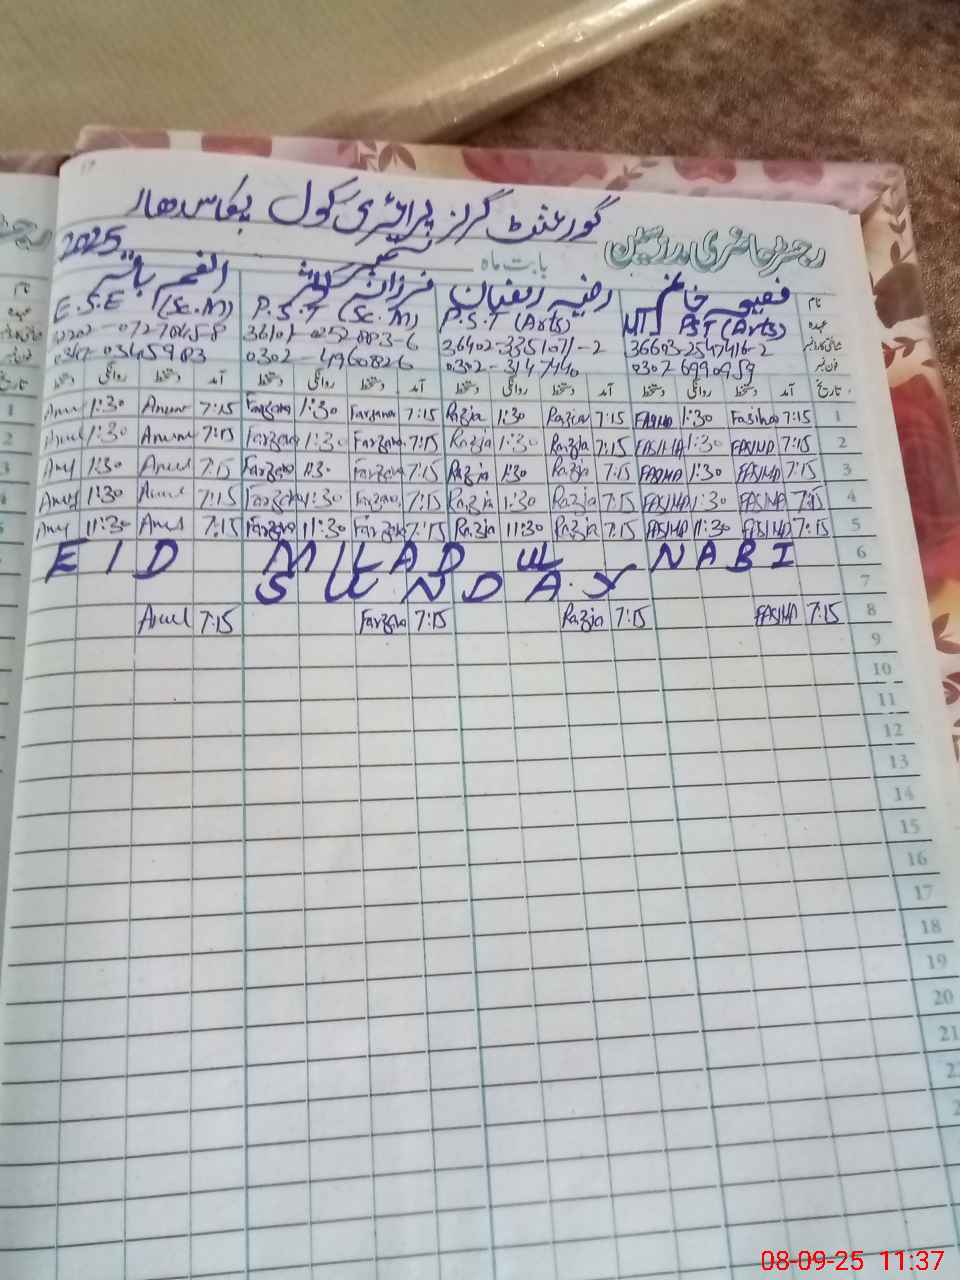 گورنمنٹ گرلز پرائمری سکول
رجسٹر حاضری مدرسین بابت ماہ ستمبر 2025
نام فصیحہ خانم رضیہ فرزانہ
عہدہ NTS PST (Arts) P.S.T (Arts) P.S.T (Sc.M) E.S.E (Sc.M)
36603-2547416-2 36402-3351071-2
03026990959 0302-3147440 0302-4960826
تاریخ آمد دستخط روانگی دستخط آمد دستخط روانگی دستخط آمد دستخط روانگی دستخط آمد دستخط روانگی دستخط
1 7:15 Fasiha 1:30 FASIHA 7:15 Razia 1:30 Razia 7:15 Farzana 1:30 Farzana 7:15 1:30
2 7:15 FASIHA 1:30 FASIHA 7:15 Razia 1:30 Razia 7:15 Farzana 1:30 Farzana 7:15 1:30
3 7:15 FASIHA 1:30 FASIHA 7:15 Razia 1:30 Razia 7:15 Farzana 1:30 Farzana 7:15 1:30
4 7:15 FASIHA 1:30 FASIHA 7:15 Razia 1:30 Razia 7:15 Farzana 1:30 Farzana 7:15 1:30
5 7:15 FASIHA 11:30 FASIHA 7:15 Razia 11:30 Razia 7:15 Farzana 11:30 Farzana 7:15 11:30
EID MILAD UL NABI 6
SUNDAY 7
8 7:15 FASIHA 7:15 Razia 7:15 Farzana 7:15
9
10
11
12
13
14
15
16
17
18
19
20
21
08-09-25 11:37